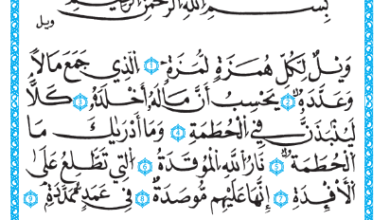 بِسْمِ اللهِ الرَّحْمٰنِ الرَّحِيْمِ
ويل
وَيْلٌ لِكُلِّ هُمَزَةٍ لُمَزَةٍ ۝١ الَّذِي جَمَعَ مَالًا
وَعَدَّدَهُ ۝٢ يَحْسَبُ أَنَّ مَالَهُ أَخْلَدَهُ ۝٣ كَلَّا
لَيُنْبَذَنَّ فِي الْحُطَمَةِ ۝٤ وَمَا أَدْرٰيكَ مَا
الْحُطَمَةُ ۝٥ نَارُ اللهِ الْمُوقَدَةُ ۝٦ الَّتِي تَطَّلِعُ عَلَى
الْأَفْئِدَةِ ۝٧ إِنَّهَا عَلَيْهِمْ مُوصَدَةٌ ۝٨ فِي عَمَدٍ مُمَدَّدَةٍ ۝٩